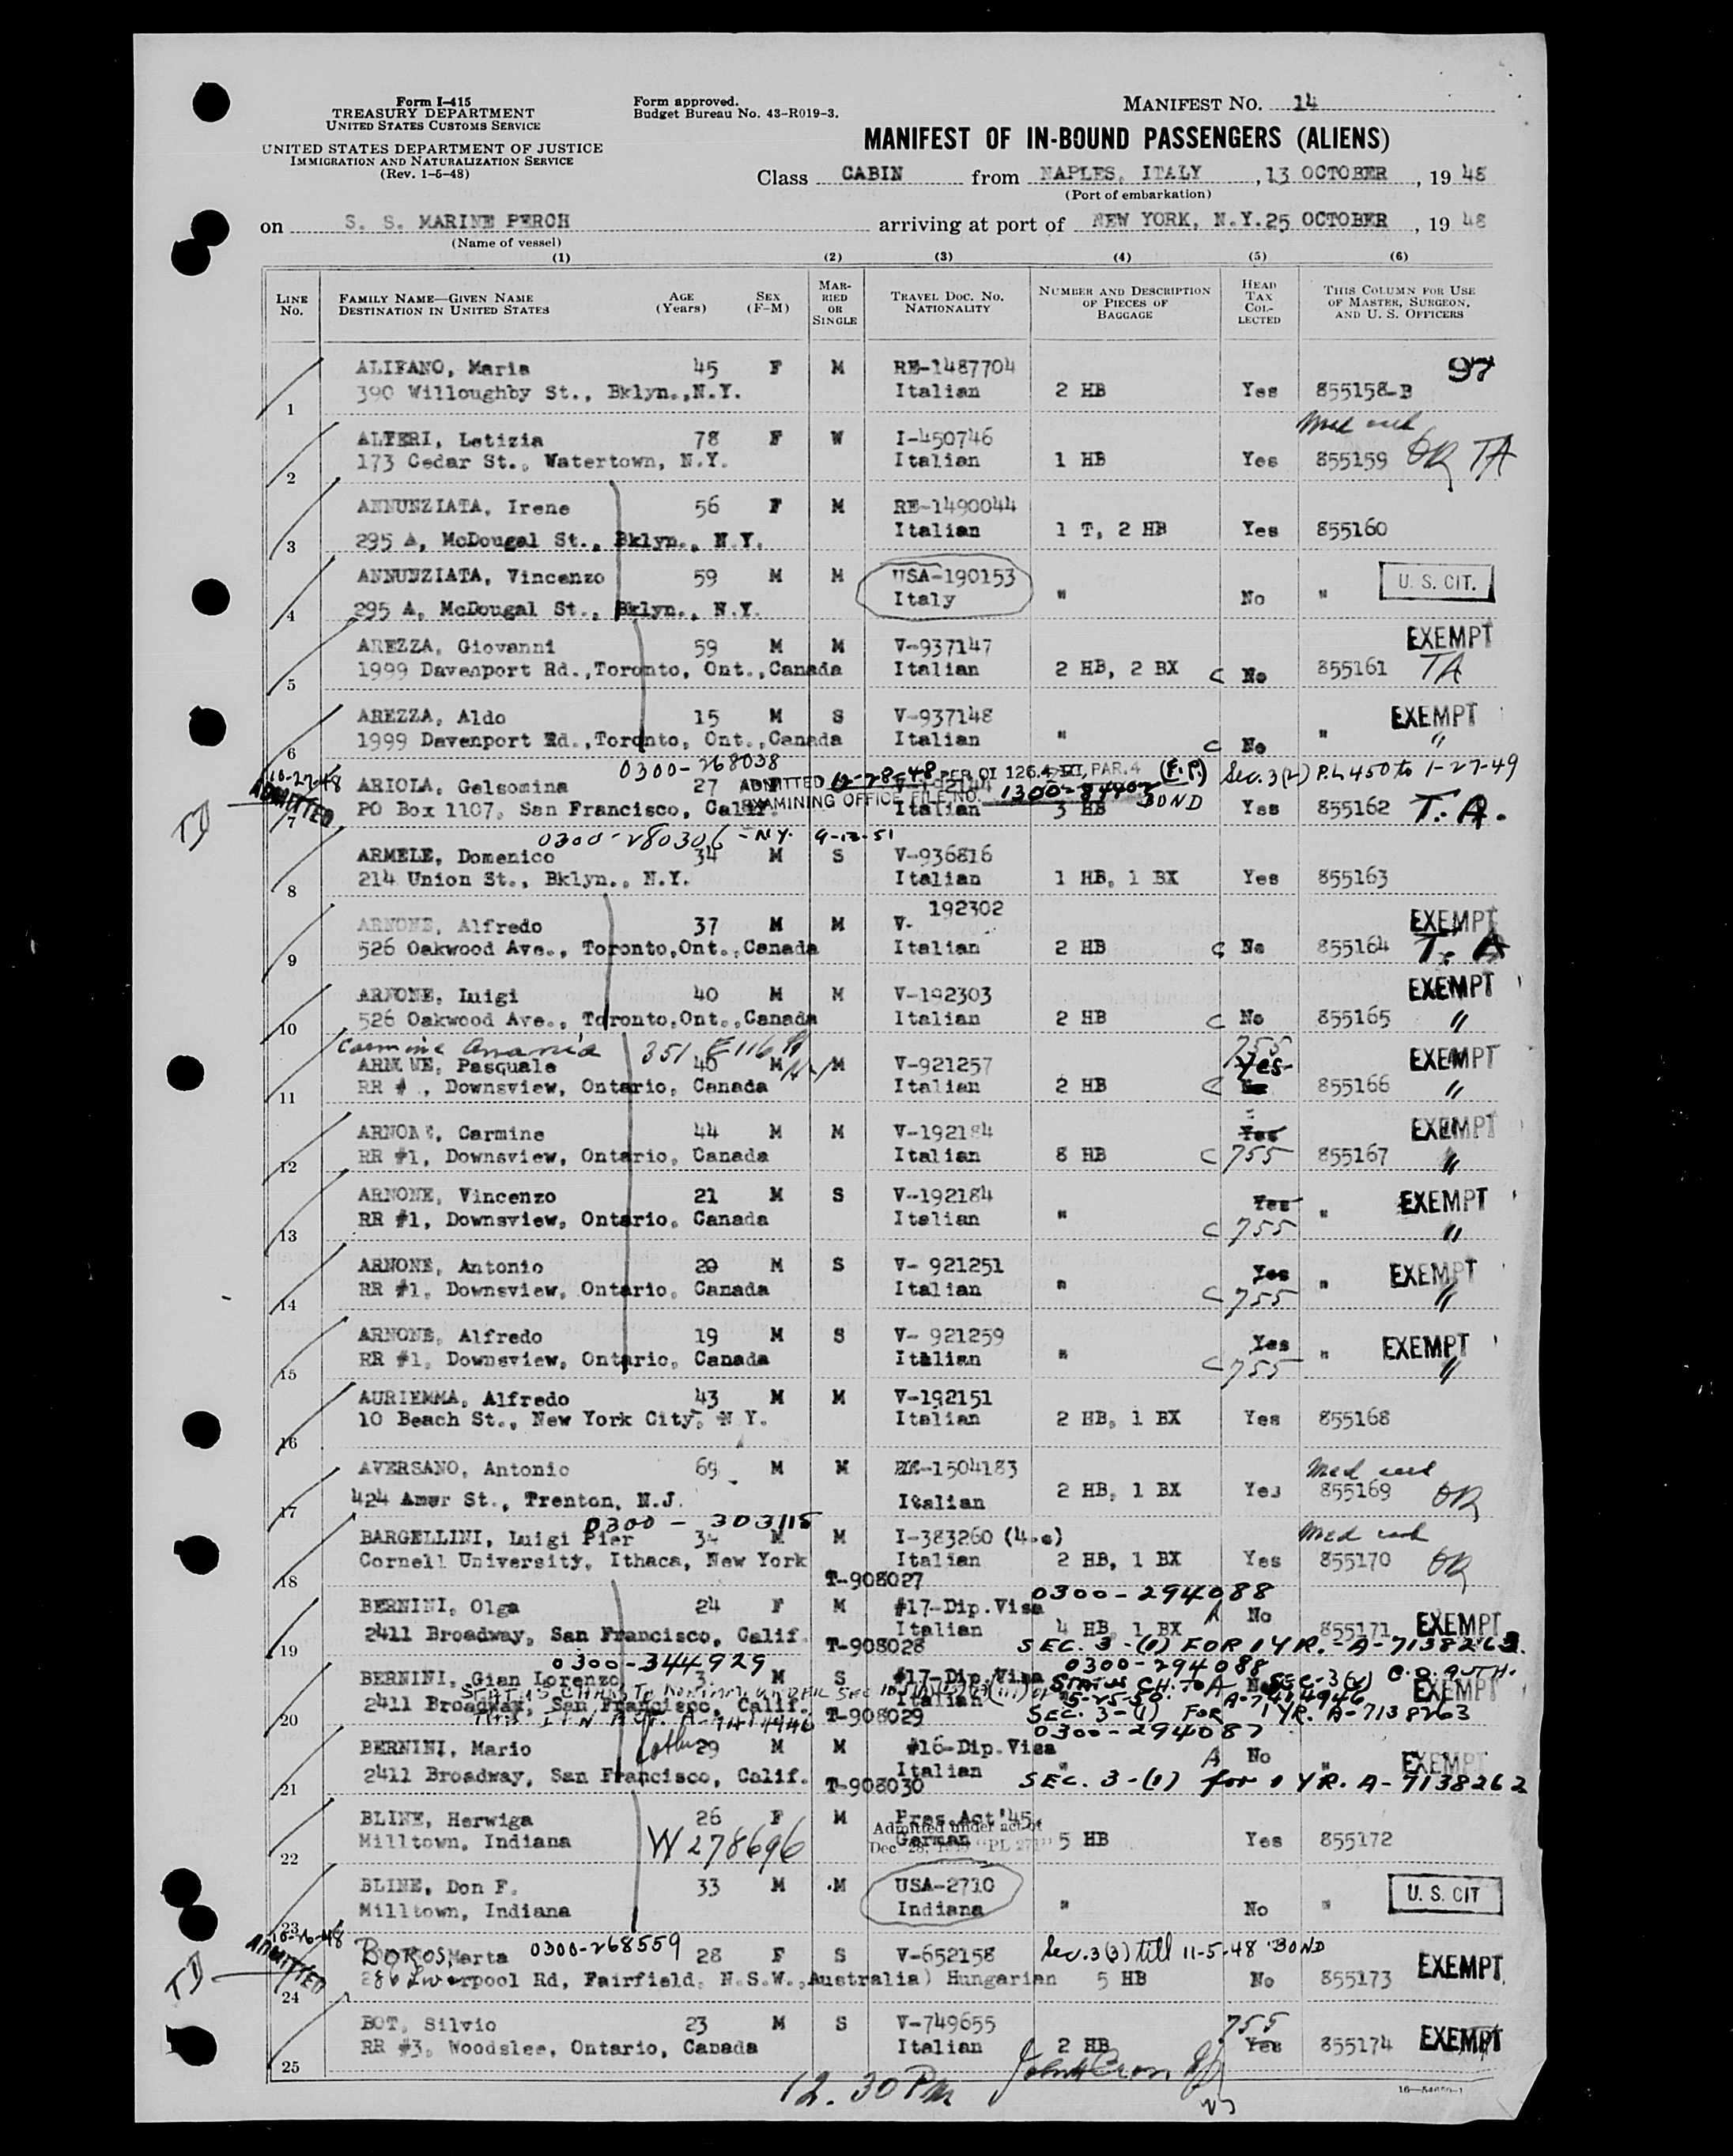 Form I-415
TREASURY DEPARTMENT
UNITED STATES CUSTOMS SERVICE
UNITED STATES DEPARTMENT OF JUSTICE
IMMIGRATION AND NATURALIZATION SERVICE
(Rev. 1-5-48)
Form approved.
Budget Bureau No. 43-R019-3.
MANIFEST No. 14
MANIFEST OF IN-BOUND PASSENGERS (ALIENS)
Class CABIN from NAPLES, ITALY, 13 OCTOBER, 19 48
(Port of embarkation)
on S. S. MARINE PERCH arriving at port of NEW YORK, N.Y. 25 OCTOBER, 19 48
(Name of vessel)
(1) (2) (3) (4) (5) (6)
LINE No. FAMILY NAME—GIVEN NAME DESTINATION IN UNITED STATES AGE (Years) SEX (F-M) MARRIED OR SINGLE TRAVEL DOC. NO. NATIONALITY NUMBER AND DESCRIPTION OF PIECES OF BAGGAGE HEAD TAX COLLECTED THIS COLUMN FOR USE OF MASTER, SURGEON, AND U. S. OFFICERS
ALIFANO, Maria 45 F M RE-1487704 97
1 390 Willoughby St., Bklyn.,N.Y. Italian 2 HB Yes 855158-B
Med cert
ALTERI, Letizia 78 F W I-450746
2 173 Cedar St., Watertown, N.Y. Italian 1 HB Yes 855159 OR TA
ANNUNZIATA, Irene 56 F M RE-1490044
3 295 A, McDougal St., Bklyn., N.Y. Italian 1 T, 2 HB Yes 855160
ANNUNZIATA, Vincenzo 59 M M USA-190153 U. S. CIT.
4 295 A, McDougal St., Bklyn., N.Y. Italy " No "
AREZZA, Giovanni 59 M M V-937147 EXEMPT
5 1999 Davenport Rd.,Toronto, Ont.,Canada Italian 2 HB, 2 BX C No 855161 TA
AREZZA, Aldo 15 M S V-937148 EXEMPT
6 1999 Davenport Rd.,Toronto, Ont.,Canada Italian " C No " "
0300-268038
10-27-48 ADMITTED
ARIOLA, Gelsomina 27 ADMITTED 12-28-48 PER OI 126. PAR.4 (F.P.) Sec. 3(2) P.L 450 to 1-27-49
EXAMINING OFFICE FILE NO. 1300-84402 BOND
TD 7 PO Box 1107, San Francisco, Calif. Italian 3 HB Yes 855162 T.A.
0300-280306 - N.Y. 9-12-51
ARMELE, Domenico 34 M S V-936816
8 214 Union St., Bklyn., N.Y. Italian 1 HB, 1 BX Yes 855163
ARNONE, Alfredo 37 M M V- 192302 EXEMPT
9 526 Oakwood Ave., Toronto,Ont.,Canada Italian 2 HB C No 855164 T. A
ARNONE, Luigi 40 M M V-192303 EXEMPT
10 526 Oakwood Ave., Toronto,Ont.,Canada Italian 2 HB C No 855165 "
Carmine 351 E 116 St 755
ARNONE, Pasquale 40 M M V-921257 Yes EXEMPT
11 RR # , Downsview, Ontario, Canada Italian 2 HB C 855166 "
ARNONE, Carmine 44 M M V-192184 Yes EXEMPT
12 RR #1, Downsview, Ontario, Canada Italian 8 HB C 755 855167 "
ARNONE, Vincenzo 21 M S V-192184 Yes EXEMPT
13 RR #1, Downsview, Ontario, Canada Italian " C 755 " "
ARNONE, Antonio 20 M S V- 921251 Yes EXEMPT
14 RR #1, Downsview, Ontario, Canada Italian " C 755 " "
ARNONE, Alfredo 19 M S V- 921259 Yes EXEMPT
15 RR #1, Downsview, Ontario, Canada Italian " C 755 " "
AURIEMMA, Alfredo 43 M M V-192151
16 10 Beach St., New York City, N Y. Italian 2 HB, 1 BX Yes 855168
Med cert
AVERSANO, Antonio 69 M M RE-1504183
17 424 Amer St., Trenton, N.J. Italian 2 HB, 1 BX Yes 855169 OR
0300 - 303115
Med cert
BARGELLINI, Luigi Pier M M I-383260 (4-e)
18 Cornell University, Ithaca, New York Italian 2 HB, 1 BX Yes 855170 OR
T-908027 0300-294088
BERNINI, Olga 24 F M #17-Dip.Visa A No
19 2411 Broadway, San Francisco, Calif. Italian 4 HB, 1 BX 855171 EXEMPT
T-908028 SEC. 3-(1) FOR 1 YR. - A-7138263.
0300-344929 0300-294088
BERNINI, Gian Lorenzo 3 M S #17-Dip.Visa STATUS CH. TO A SEC-3(1) C.O. AUTH.
20 2411 Broadway, San Francisco, Calif. Italian 5-25-50. A-7414946 EXEMPT
T-908029 SEC. 3-(1) FOR 1 YR. A-7138263
0300-294087
BERNINI, Mario 29 M M #16-Dip.Visa A No
21 2411 Broadway, San Francisco, Calif. Italian " " EXEMPT
T-908030 SEC. 3-(1) for 1 YR. A-7138262
BLINE, Herwiga 26 F M Pres.Act'45.
Admitted under act of
22 Milltown, Indiana W 278696 German 5 HB Yes 855172
Dec. 28, "PL 271"
BLINE, Don F. 33 M M USA-2710 U. S. CIT
23 Milltown, Indiana Indiana " No "
10-26-48 ADMITTED
BOROS, Marta 0300-268559 28 F S V-652158 Sec. 3(3) till 11-5-48 BOND
TD 24 286 Liverpool Rd, Fairfield, N.S.W.,Australia) Hungarian 5 HB No 855173 EXEMPT
BOT, Silvio 23 M S V-749655 755
25 RR #3, Woodslee, Ontario, Canada Italian 2 HB Yes 855174 EXEMPT
12.30 PM